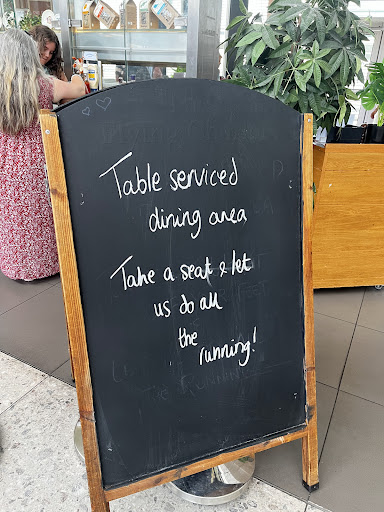 Table serviced
dining area
Take a seat & let
us do all
the
running!